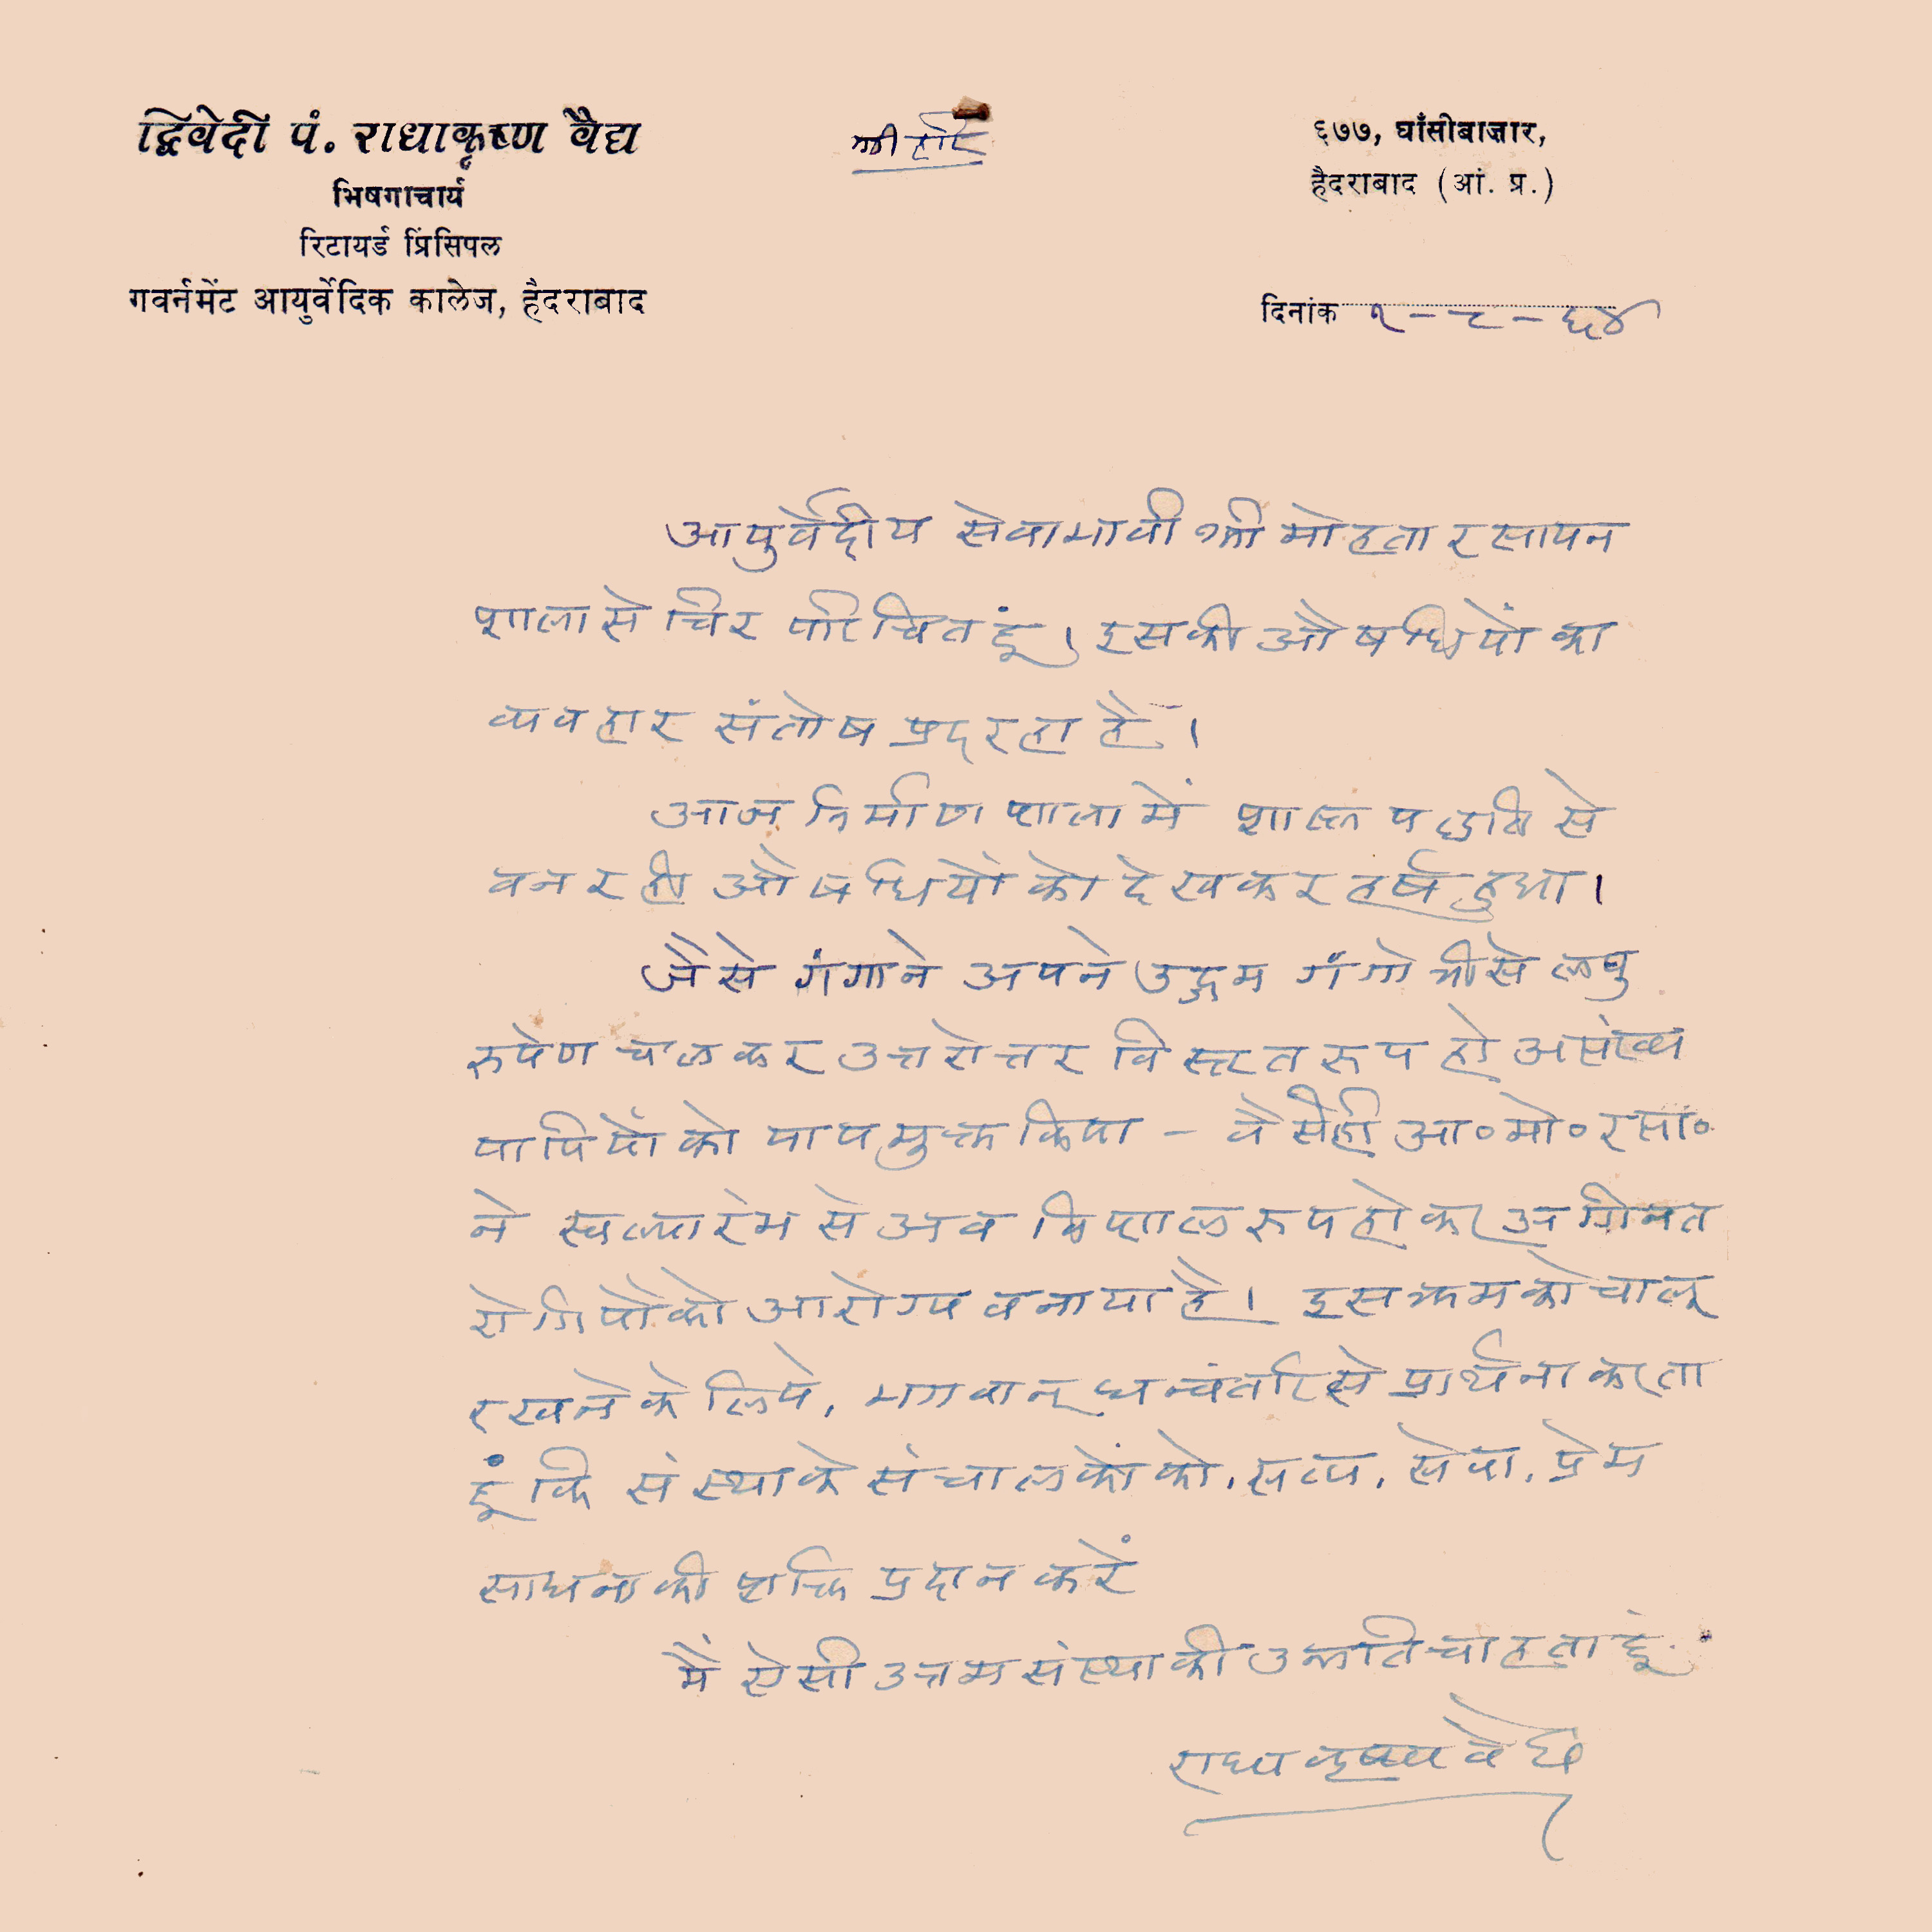 द्विवेदी पं. राधाकृष्ण वैद्य
भिषगाचार्य
रिटायर्ड प्रिंसिपल
गवर्नमेंट आयुर्वेदिक कालेज, हैदराबाद
श्री हरिः
६७७, घाँसीबाज़ार,
हैदराबाद (आं. प्र.)
दिनांक १-८-६४
आयुर्वेदीय सेवाभावी श्री मोहता रसायन
शाला से चिर परिचित हूं। इसकी औषधियों का
व्यवहार संतोष प्रद रहा है।
आज निर्माण शाला में शास्त्र पद्धति से
बन रही औषधियों को देखकर हर्ष हुआ।
जैसे गंगाने अपने उद्गम गंगोत्रीसे लघु
रुपेण चलकर उत्तरोत्तर विस्तृत रूप हो असंख्य
पापियों को पाप मुक्त किया - वैसेही आ॰ मो॰ रसा॰
ने स्वल्पारंभ से अब विशाल रुप होकर अगिनत
रोगियोंको आरोग्य बनाया है। इस क्रम को चालू
रखने के लिये, भगवान् धन्वंतरिसे प्रार्थना करता
हूं कि संस्था के संचालकों को, सत्य, सेवा, प्रेम
साधना की शक्ति प्रदान करें
मैं ऐसी उत्तम संस्था की उन्नति चाहता हूं.
राधाकृष्ण वैद्य